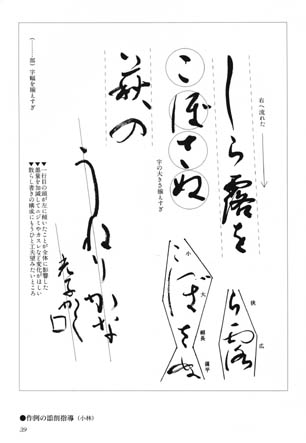 しら露を
右へ流れた
こぼさぬ
字の大きさ揃えすぎ
萩の
(——部)字幅を揃えすぎ
うねりかな
▼一行目の頭が左に傾いたことが全体に影響した
▼墨量を加減してニジミやカスレなど変化がほしい
▼散らし書きの構成にもうひと工夫望みたいところ
狭
広
ら露
小
大
細長
扁平
こぼさぬ
●作例の添削指導(小林)
39